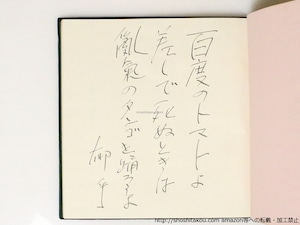 百度のトマトよ
差しで死ぬときは
亂氣のタンゴを踊ろうよ
郁乎
http://shoshitakou.com amazon等への転載・加工禁止